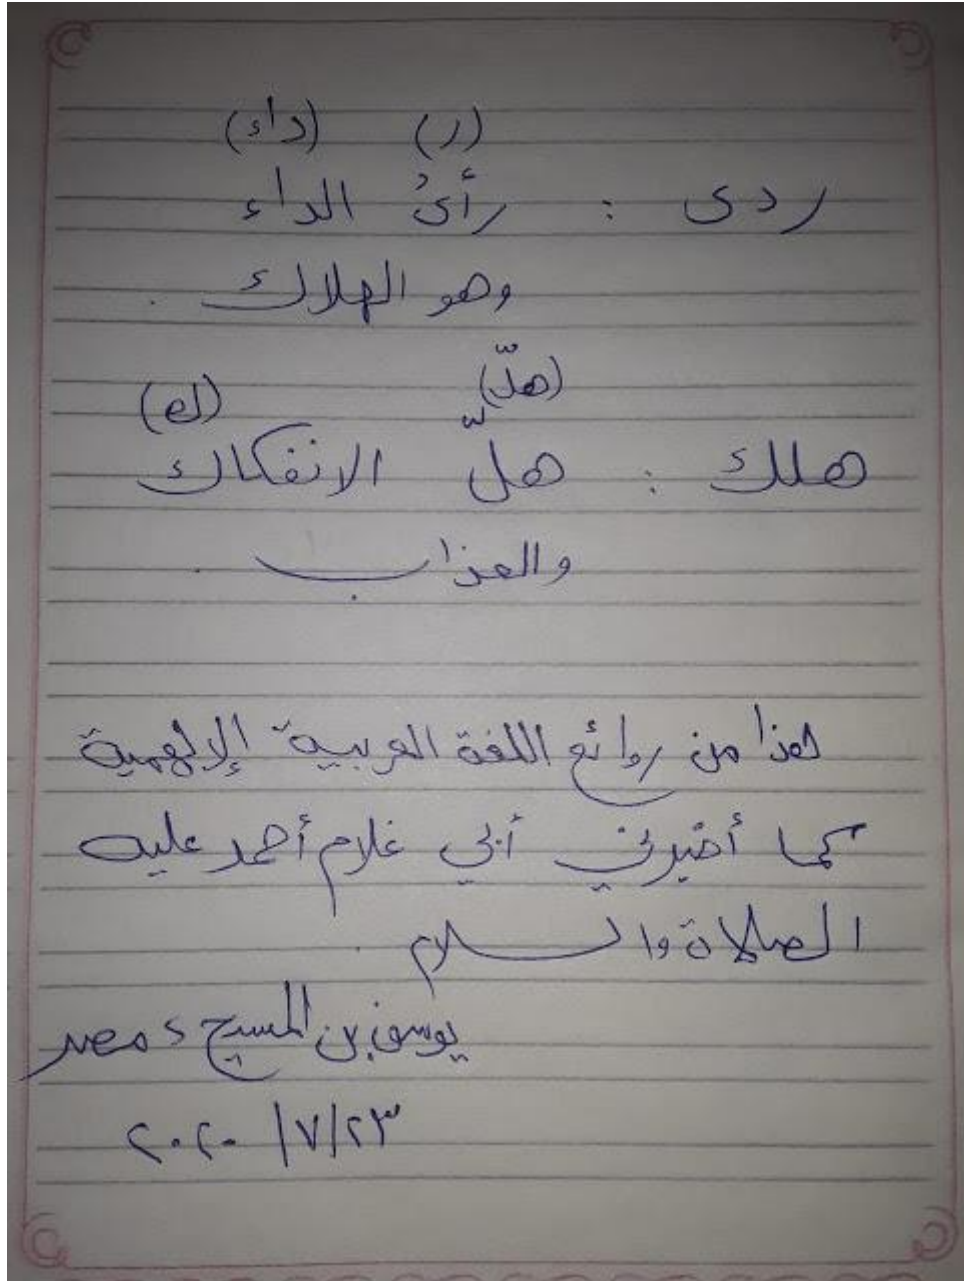 (ر) (داء)
ردى : رأىُ الداء
وهو الهلاك .
(هلّ) (ك)
هلك : هلّ الانفكاك
والعذاب .
هذا من روائع اللغة العربية الإلهمية
كما أخبرني أبي غلام أحمد عليه
الصلاة والسلام .
يوسف بن المسيح ، مصر
٢٠٢٠ /٧/٢٣